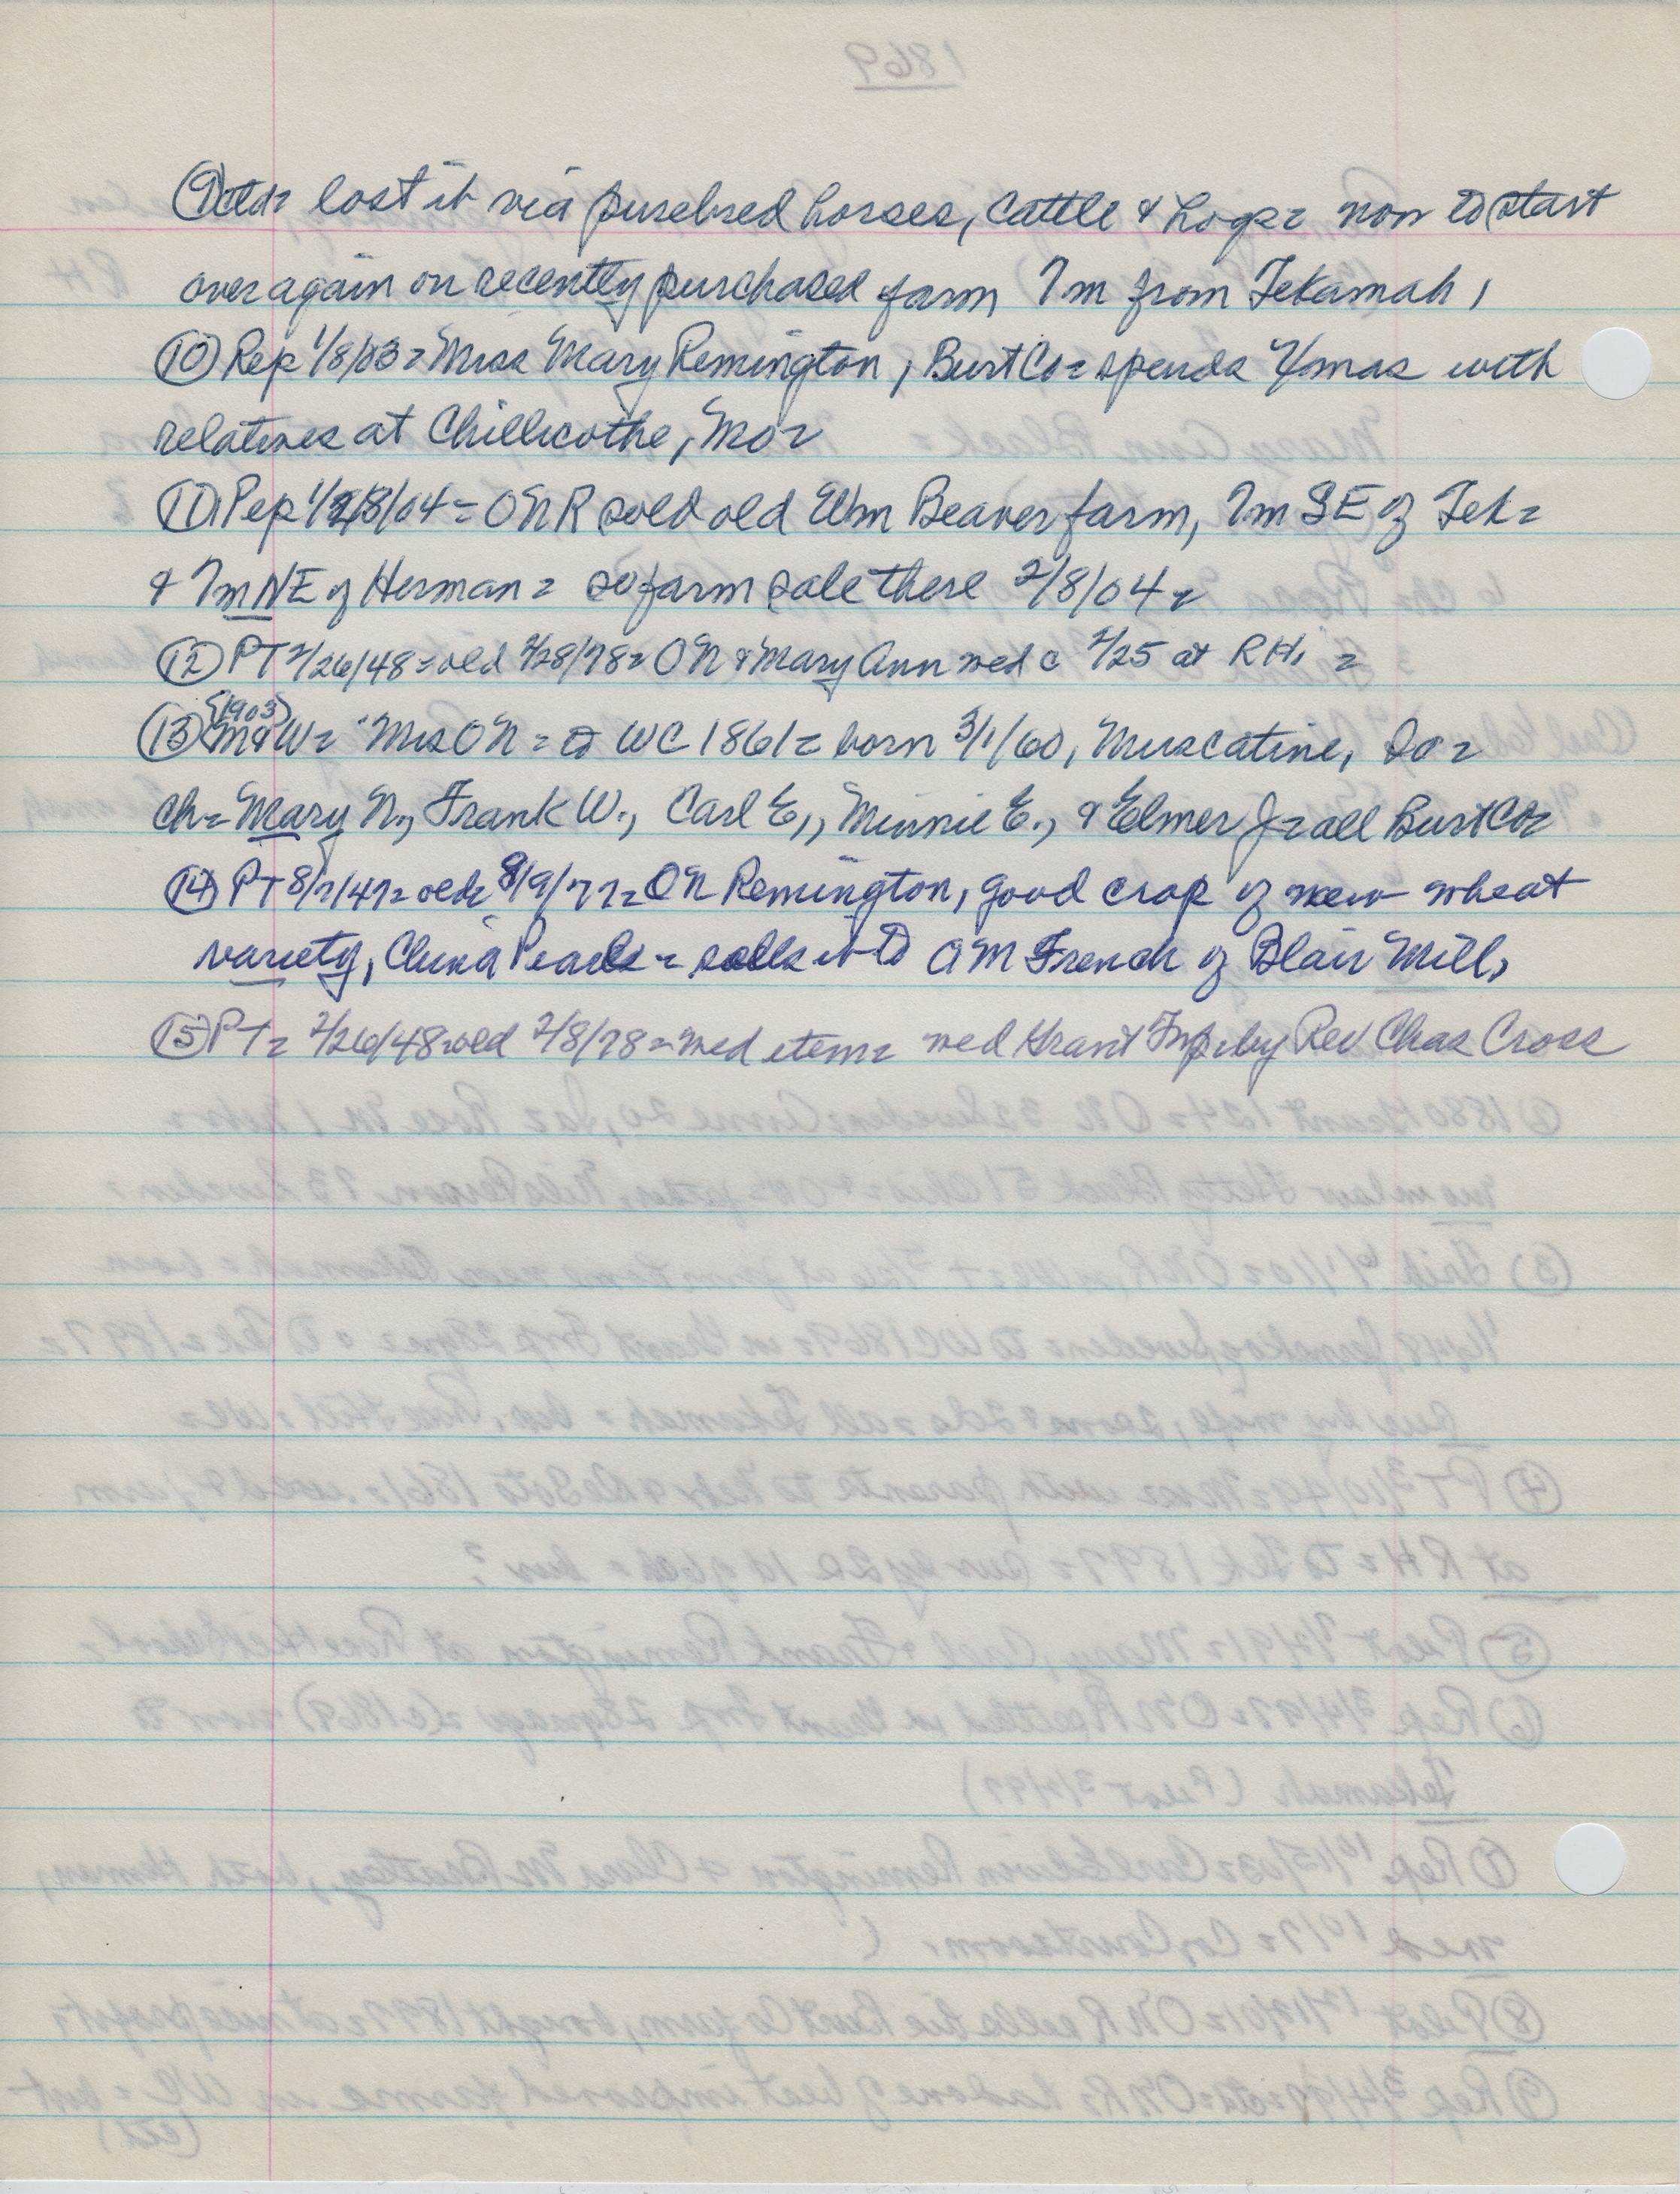 ⑨ctd= lost it via purebred horses, cattle & hogs= now to start
over again on recently purchased farm 7m from Tekamah,
⑩ Rep 1/8/03= Miss Mary Remington, Burt Co= spends Xmas with
relatives at Chillicothe, Mo=
⑪ Rep 1/28/04= ONR sold old Elm Beaver farm, 7m SE of Tek=
& 7m NE of Herman= so farm sale there 2/8/04=
⑫ PT 2/26/48= old 2/28/78= ON & Mary Ann wed c 2/25 at RH, =
{1903}
⑬ M&W= "Mrs ON= to WC 1861= born 3/1/60, Muscatine, Ia=
ch= Mary N., Frank W., Carl E,, Minnie E., & Elmer J= all Burt Co=
⑭ PT 8/7/47= old= 8/9/77= ON Remington, good crop of new wheat
variety, China Pearls= sells it to AM French of Blair Mill,
⑮ PT= 2/26/48= old 2/8/78= wed item= wed Grant Twp. by Rev Chas Cross